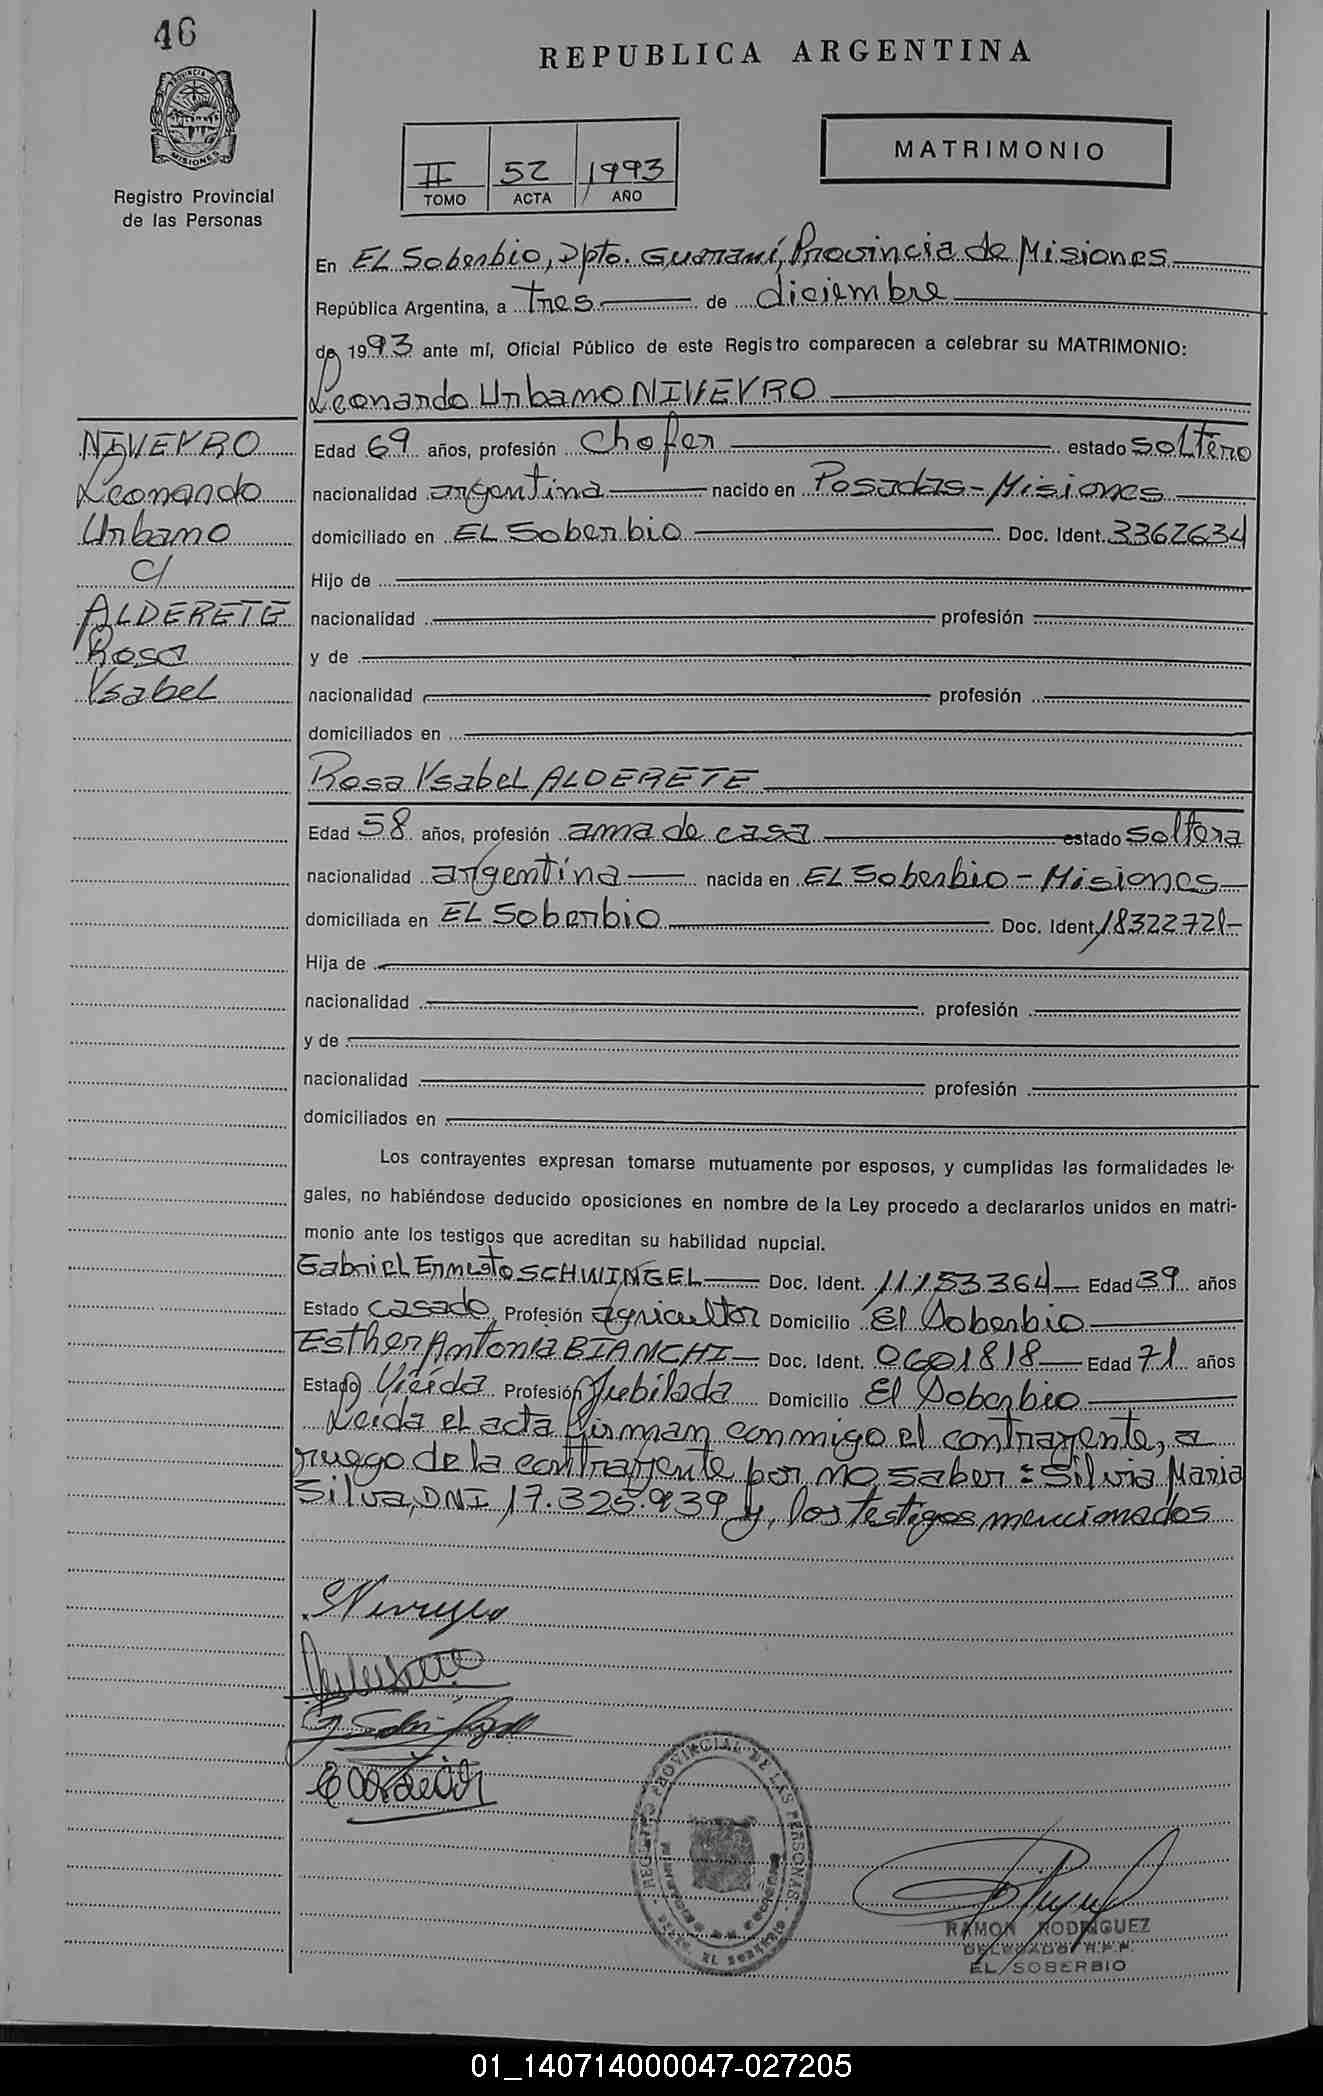 46
REPUBLICA ARGENTINA
PROVINCIA D MISIONES
Registro Provincial
de las Personas
II 52 1993
TOMO ACTA AÑO
MATRIMONIO
En EL Soberbio, Dpto. Guaraní, Provincia de Misiones
República Argentina, a tres de diciembre
de 1993 ante mí, Oficial Público de este Registro comparecen a celebrar su MATRIMONIO:
Leonardo Urbano NIVEYRO
NIVEYRO
Leonardo
Urbano
c/
ALDERETE
Rosa
Ysabel
Edad 69 años, profesión Chofer estado soltero
nacionalidad argentina nacido en Posadas - Misiones
domiciliado en EL Soberbio Doc. Ident. 3362634
Hijo de
nacionalidad profesión
y de
nacionalidad profesión
domiciliados en
Rosa Ysabel ALDERETE
Edad 58 años, profesión ama de casa estado soltera
nacionalidad argentina nacida en EL Soberbio - Misiones
domiciliada en EL Soberbio Doc. Ident. 18322721-
Hija de
nacionalidad profesión
y de
nacionalidad profesión
domiciliados en
Los contrayentes expresan tomarse mutuamente por esposos, y cumplidas las formalidades le-
gales, no habiéndose deducido oposiciones en nombre de la Ley procedo a declararlos unidos en matri-
monio ante los testigos que acreditan su habilidad nupcial.
Gabriel Ernesto SCHWINGEL Doc. Ident. 11.153.364 Edad 39 años
Estado casado Profesión agricultor Domicilio El Soberbio
Esther Antonia BIANCHI Doc. Ident. 0601818 Edad 71 años
Estado Viúda Profesión Jubilada Domicilio El Soberbio
Leída el acta firman conmigo el contrayente, a
ruego de la contrayente por no saber: Silvia Maria
Silva, DNI 17.325.939 y, los testigos mencionados
REGISTRO PROVINCIAL DE LAS PERSONAS
EL SOBERBIO
RAMON RODRIGUEZ
DELEGADO R.P.P.
EL SOBERBIO
01_140714000047-027205